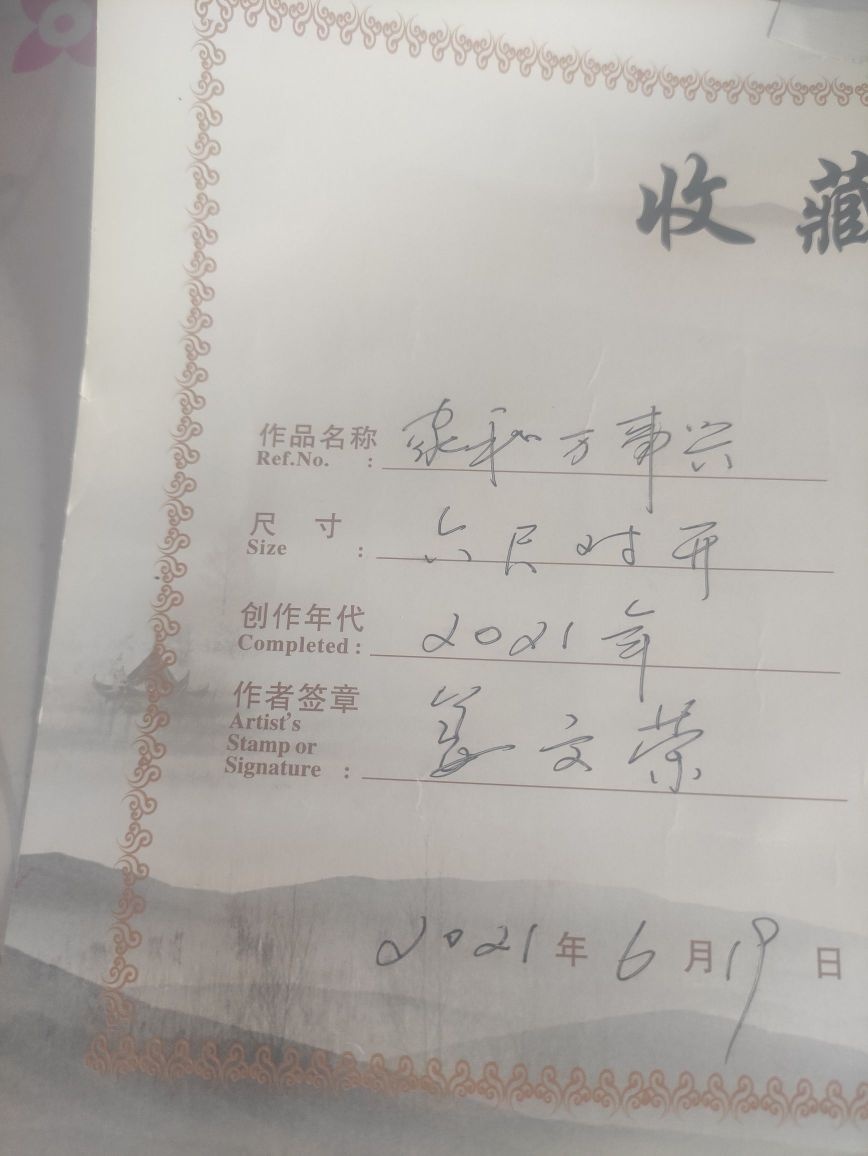 收藏
作品名称 家和万事兴
Ref.No. :
尺寸 六尺对开
Size :
创作年代 2021年
Completed:
作者签章 姜文荣
Artist's
Stamp or
Signature :
2021年6月19日